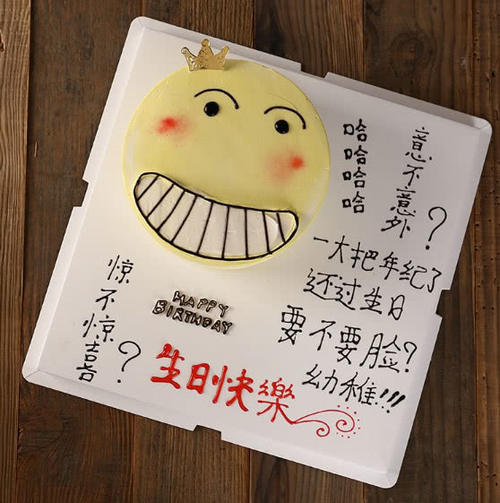 哈哈哈哈
意不意外?
一大把年纪了
还过生日
要不要脸?
幼稚!!!
惊不惊喜?
HAPPY
BIRTHDAY
生日快樂